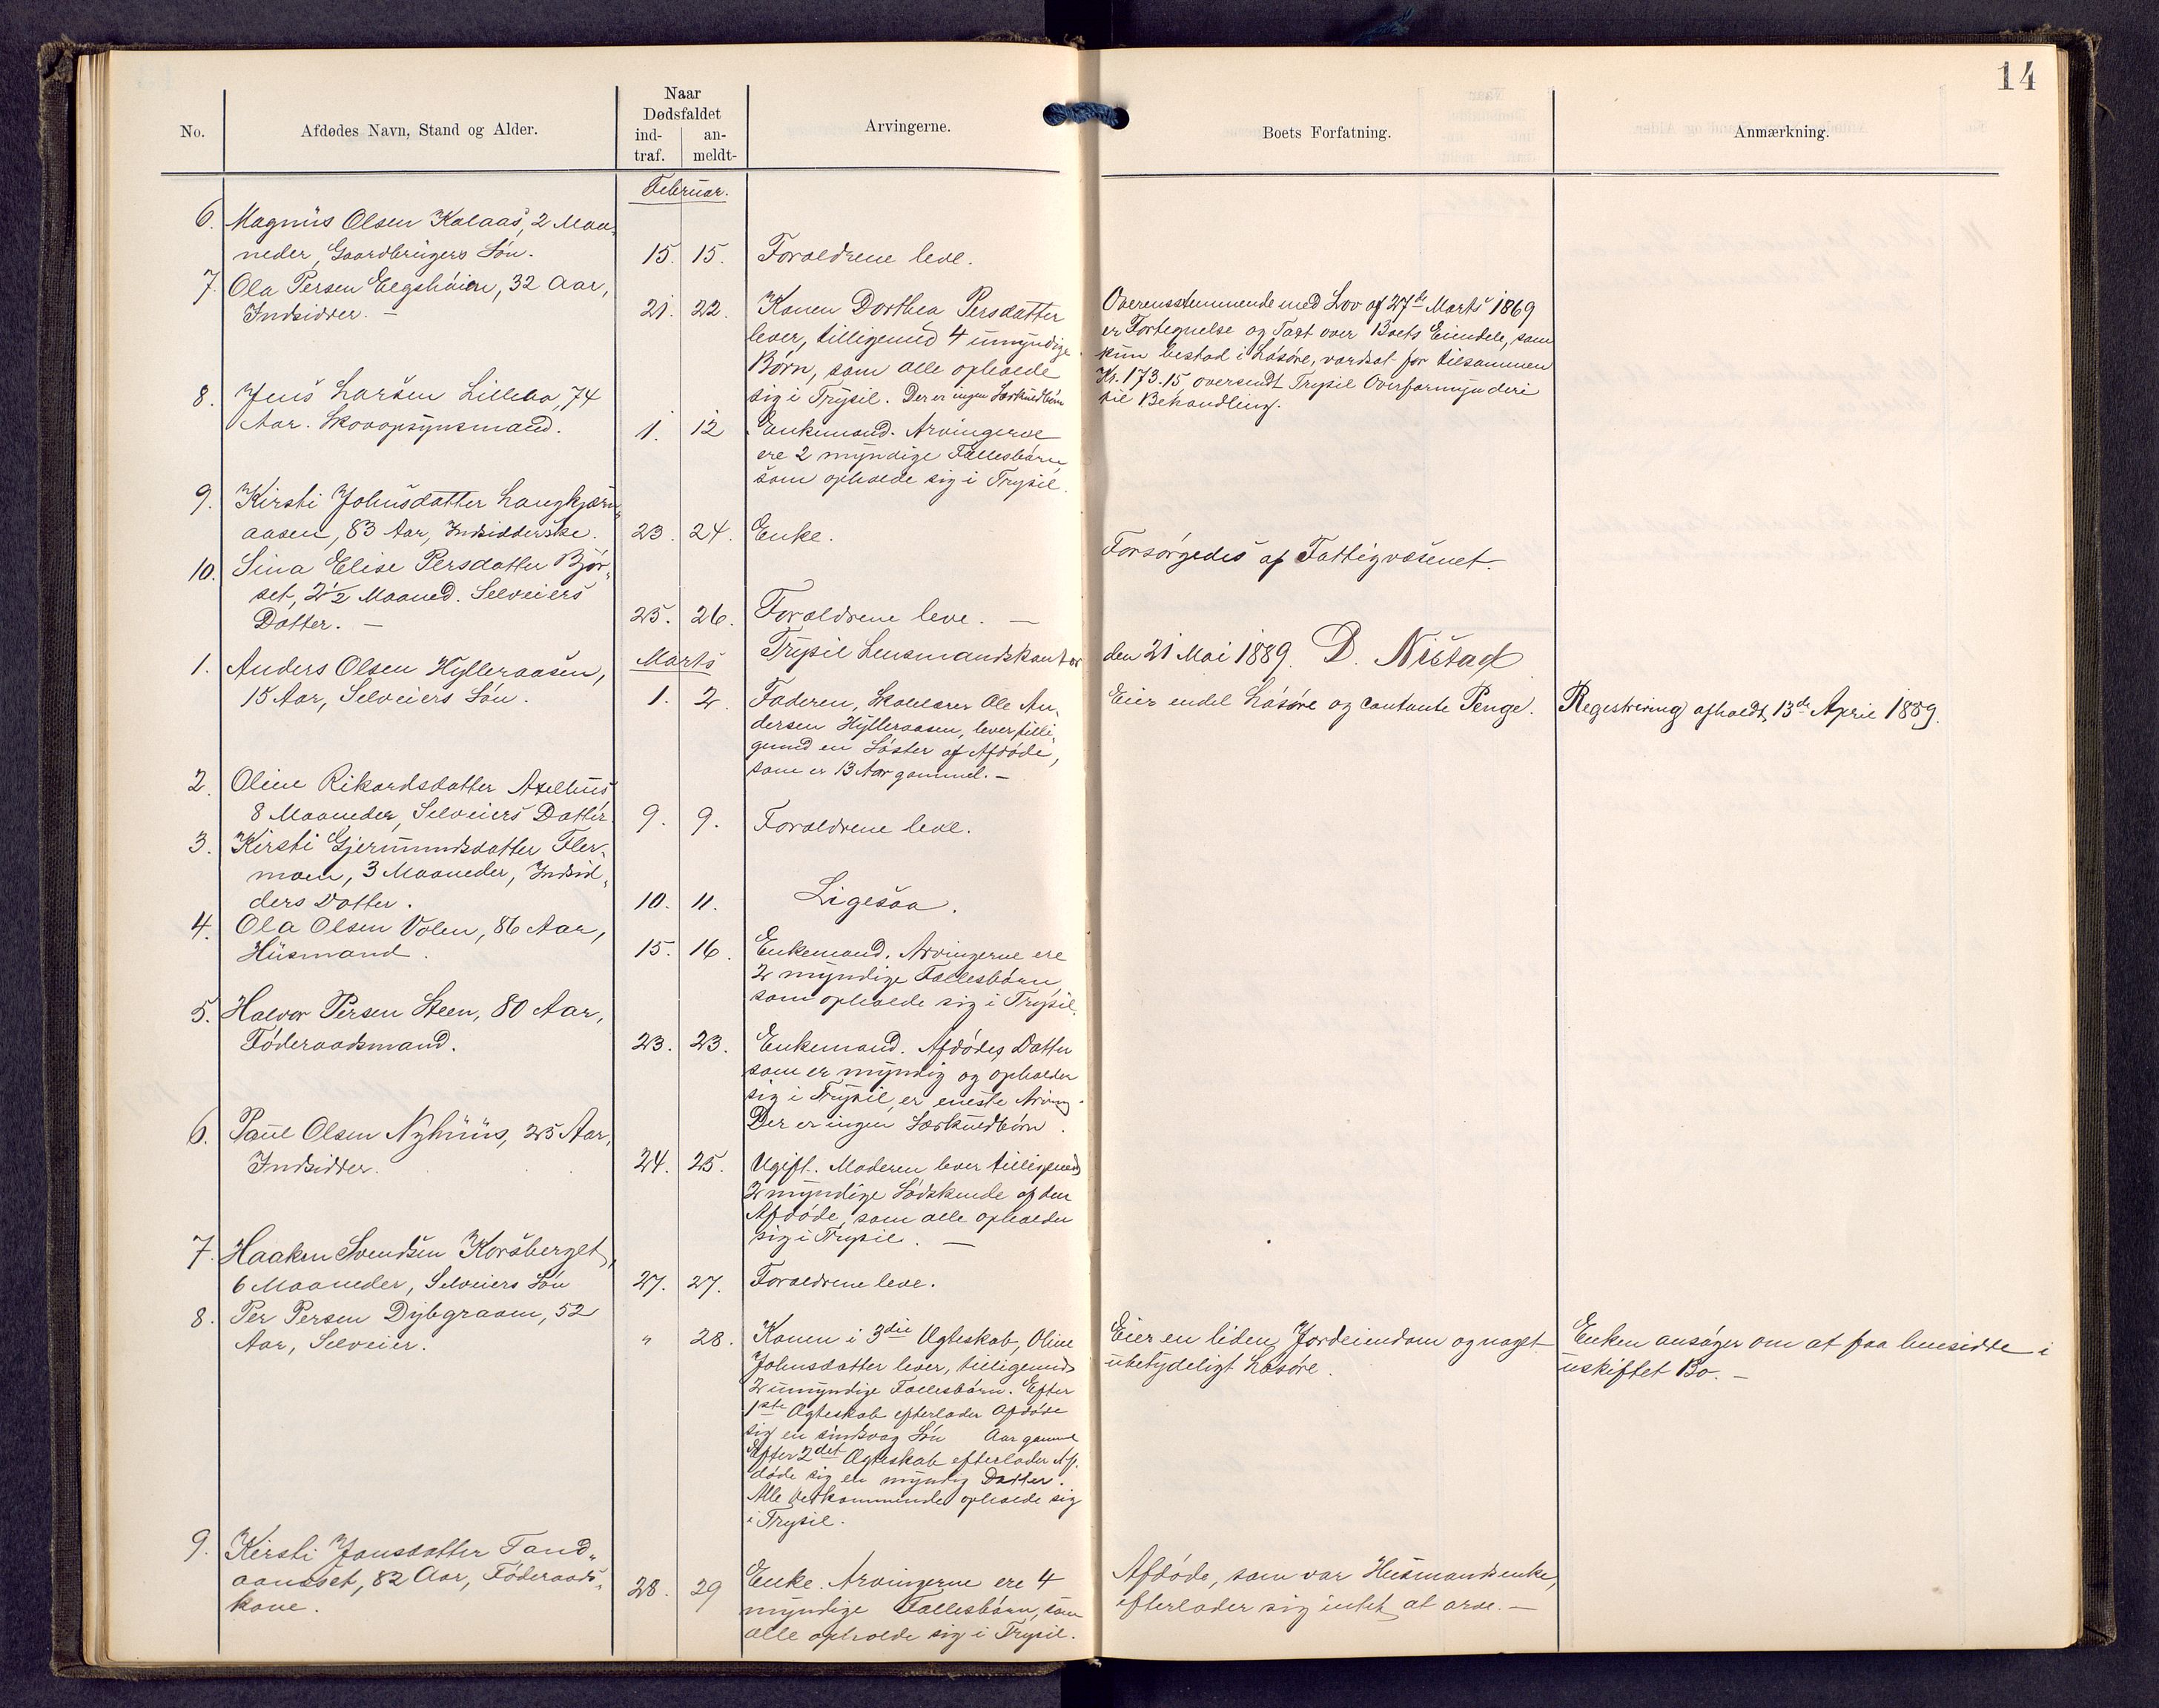 14
No.
Afdødes Navn, Stand og Alder.
Naar
Dødsfaldet
ind-
traf.
an-
meldt-
Arvingerne.
Boets Forfatning.
Anmærkning.
Februar.
6. Magnus Olsen Kolaas, 2 Maa-
neder, Gaardbrugers Søn. 15. 15. Forældrene leve.
7. Ola Persen Elgshøien, 32 Aar,
Indsidder. — 21. 22. Konen Dorthea Persdatter
lever, tilligemed 4 umyndige
Børn, som alle opholde
sig i Trysil. Der er ingen Særkuldbørn
Overensstemmende med Lov af 27de Marts 1869
er Fortegnelse og Taxt over Boets Eiendele, som
kun bestod i Løsøre, værdsat for tilsammen
Kr. 173.15 oversendt Trysil Overformynderi
til Behandling.
8. Jens Larsen Lillebo, 74
Aar. Skovopsynsmand. 1. 12 Enkemand. Arvingerne
ere 2 myndige Fællesbørn
som opholde sig i Trysil.
9. Kirsti Johnsdatter Langkjærn-
aasen, 83 Aar, Indsidderske. 23. 24. Enke.
Forsørgedes af Fattigvæsenet.
10. Sina Elise Persdatter Bjør-
set, 2 1/2 Maaned. Selveiers
Datter. — 25. 26. Forældrene leve. —
Trysil Lensmandskontor den 21 Mai 1889. D. Nistad
Marts
1. Anders Olsen Hylleraasen,
15 Aar, Selveiers Søn. 1. 2. Faderen, Skolelærer Ole An-
dersen Hylleraasen, lever tilli-
gemed en Søster af Afdøde,
som er 13 Aar gammel. —
Eier endel Løsøre og contante Penge.
Registrering afholdt 13de April 1889.
2. Oline Rikardsdatter Axelhus
8 Maaneder, Selveiers Datter. 9. 9. Forældrene leve.
3. Kirsti Gjermundsdatter Fler-
moen, 3 Maaneder, Indsid-
ders Datter. 10. 11. Ligesaa.
4. Ola Olsen Volen, 86 Aar,
Husmand. 15. 16. Enkemand. Arvingerne ere
2 myndige Fællesbørn,
som opholde sig i Trysil.
5. Halvor Persen Steen, 80 Aar,
Føderaadsmand. 23. 23. Enkemand. Afdødes Datter
som er myndig og opholder
sig i Trysil, er eneste Arving.
Der er ingen Særkuldbørn.
6. Paul Olsen Nyhuus, 25 Aar,
Indsidder. 24. 25. Ugift. Moderen lever tilligemed
2 myndige Sødskende af den
Afdøde, som alle opholder
sig i Trysil. —
7. Haaken Svendsen Korsberget,
6 Maaneder, Selveiers Søn 27. 27. Forældrene leve.
8. Per Persen Dybgraven, 52
Aar, Selveier. " 28. Konen i 3die Ægteskab, Oline
Johnsdatter lever, tilligemed
2 umyndige Fællesbørn. Efter
1ste Ægteskab efterlader Afdøde
sig en sindsvag Søn Aar gammel
Efter 2det Ægteskab efterlader Af-
døde sig en myndig Datter.
Alle Vedkommende opholde sig
i Trysil.
Eier en liden Jordeiendom og noget
ubetydeligt Løsøre.
Enken ansøger om at faa hensidde i
uskiftet Bo. —
9. Kirsti Jonsdatter Tand-
aaneset, 82 Aar, Føderaads-
kone. 28. 29 Enke. Arvingerne ere 4
myndige Fællesbørn, som
alle opholde sig i Trysil.
Afdøde, som var Husmandsenke,
efterlader sig intet at arve. —